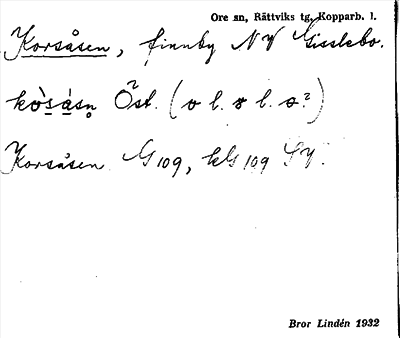 Ore sn, Rättviks tg, Kopparb. l.
Korsåsen, finnby NV Gisslebo.
kòsåsn Öst. (o l. ɤ l. a?)
Korsåsen G 109, kG 109 SV.
Bror Lindén 1932